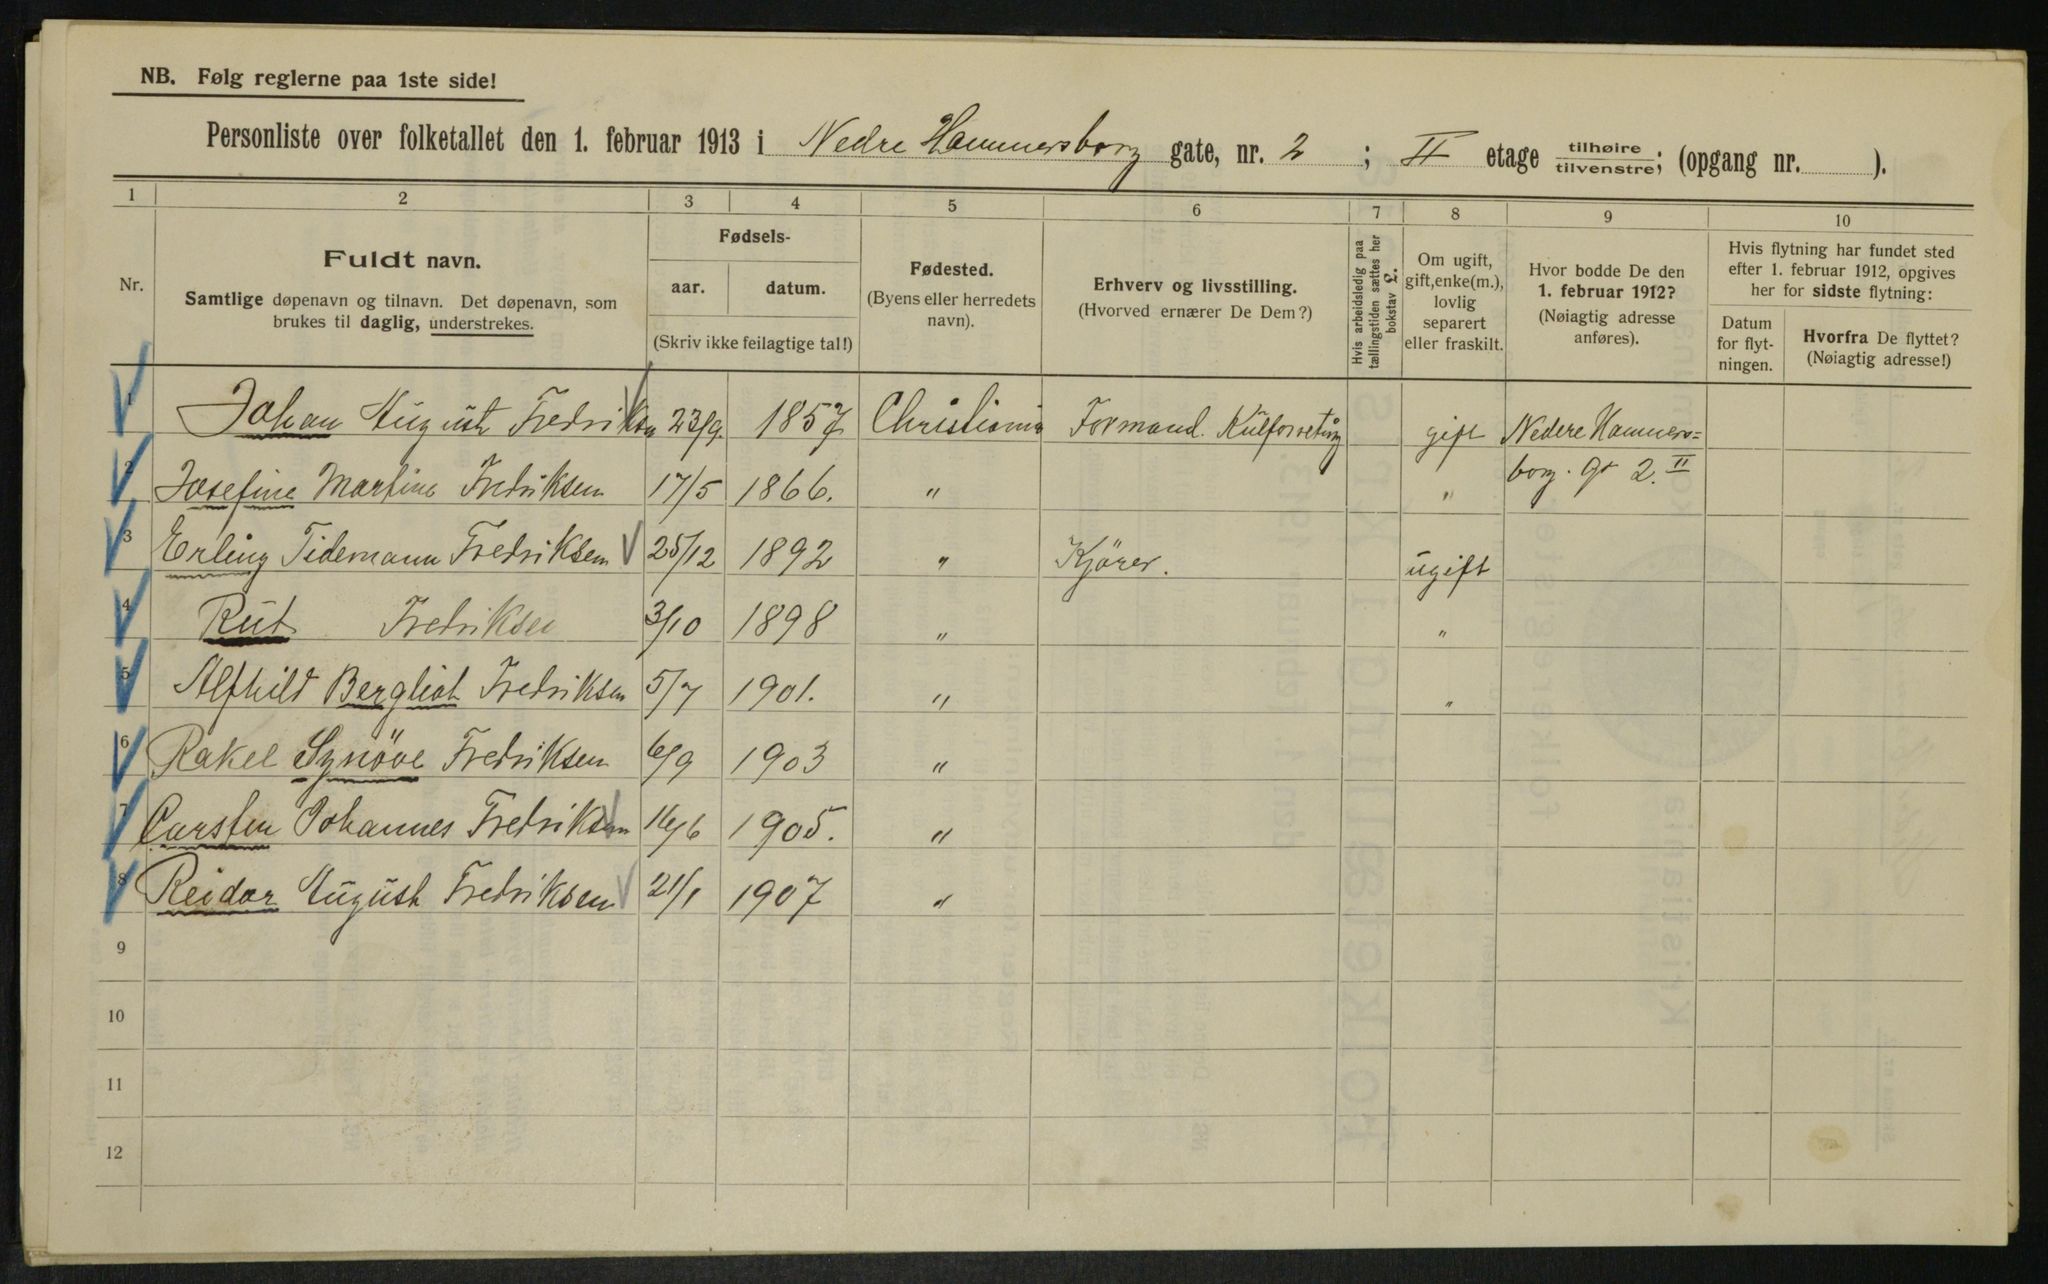 NB. Følg reglerne paa 1ste side!
Personliste over folketallet den 1. februar 1913 i Nedre Hammersborg gate, nr. 2 ; II etage tilhøire/tilvenstre; (opgang nr. ).
1 2 3 4 5 6 7 8 9 10
Nr.
Fuldt navn.
Samtlige døpenavn og tilnavn. Det døpenavn, som
brukes til daglig, understrekes.
Fødsels-
aar. datum.
(Skriv ikke feilagtige tal!)
Fødested.
(Byens eller herredets
navn).
Erhverv og livsstilling.
(Hvorved ernærer De Dem?)
Hvis arbeidsledig paa
tællingstiden sættes her
bokstav £.
Om ugift,
gift, enke(m.),
lovlig
separert
eller fraskilt.
Hvor bodde De den
1. februar 1912?
(Nøiagtig adresse
anføres).
Hvis flytning har fundet sted
efter 1. februar 1912, opgives
her for sidste flytning:
Datum
for flyt-
ningen.
Hvorfra De flyttet?
(Nøiagtig adresse!)
1 Johan August Fredriksen 23/9. 1857 Christiania Formand. Kulforretning gift Nedere Hammers=
2 Josefine Martine Fredriksen 17/5 1866. " " borg. gt 2. II
3 Erling Tidemann Fredriksen 25/12 1892 " Kjörer. ugift
4 Rut Fredriksen 3/10 1898 " "
5 Alfhild Bergliot Fredriksen 5/7 1901. " "
6 Rakel Synöve Fredriksen 6/9 1903 "
7 Carsten Johannes Fredriksen 16/6 1905. "
8 Reidar August Fredriksen 21/1 1907 "
9
10
11
12